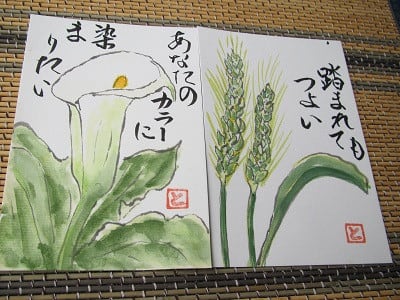 あなたの
カラーに
染
ま
りたい
と
踏まれても
つよい
と